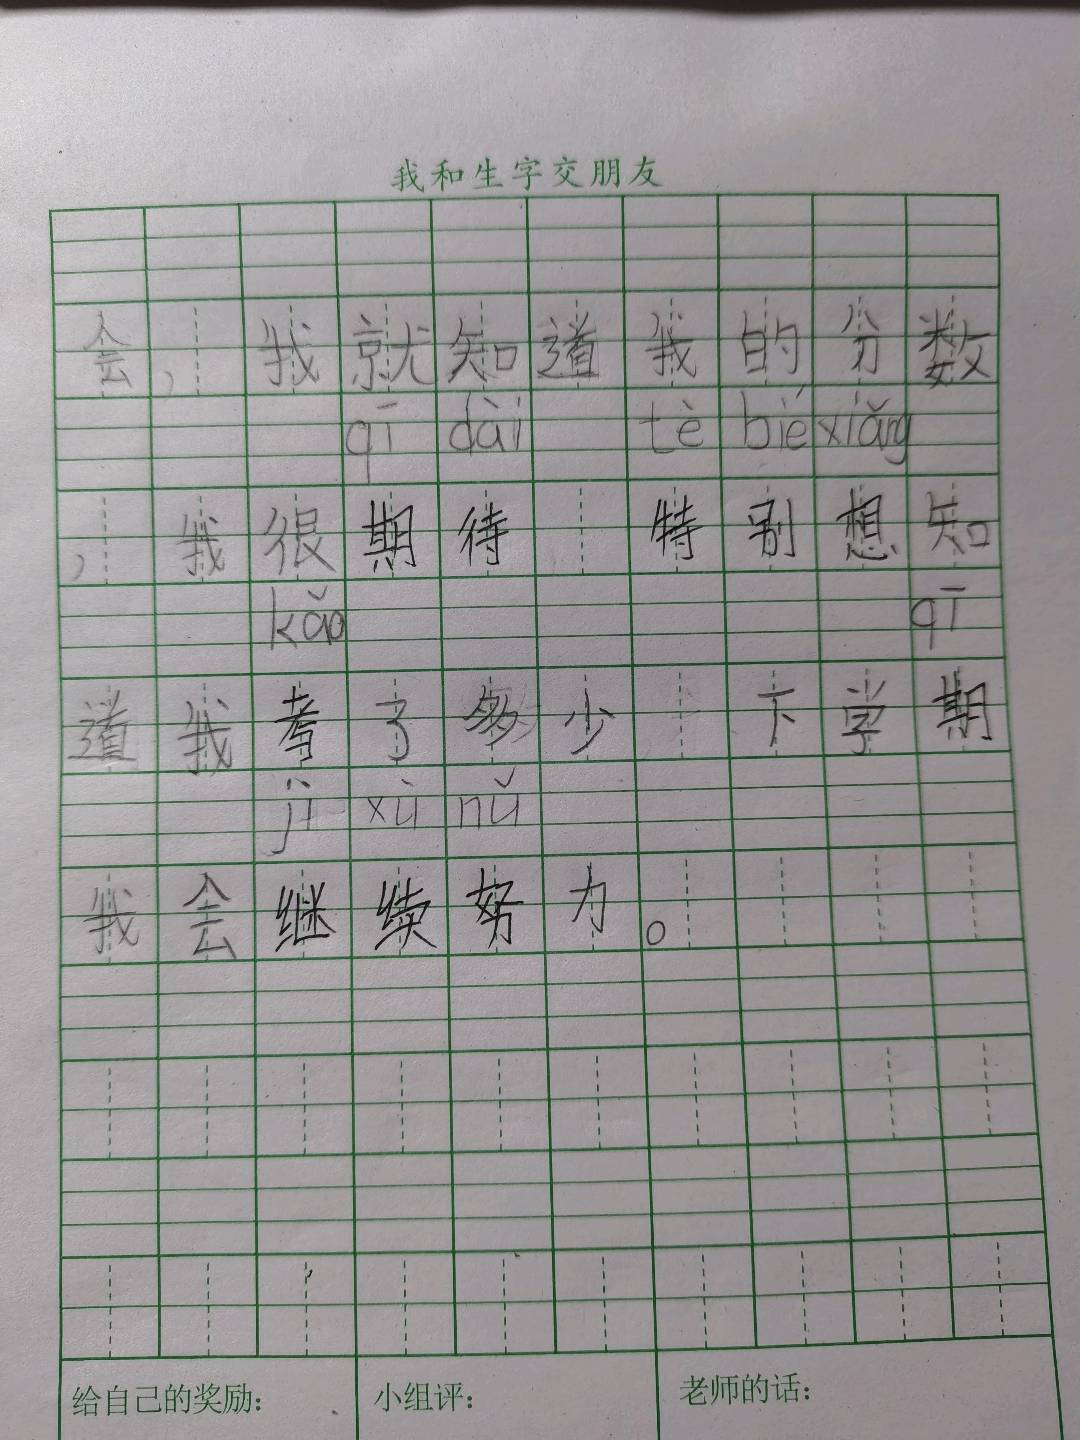 我和生字交朋友
会,我就知道我的分数
qī dài tè bié xiǎng
,我很期待 特别想知
kǎo qī
道我考了多少 下学期
jì xù nǔ
我会继续努力。
给自己的奖励: 小组评: 老师的话: